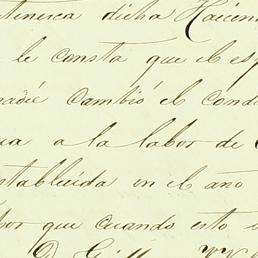 tenesca dicha Hacien
le consta que el es
nadie cambió el cond
ua a la labor de
stablecida en el año
por que cuando esto s